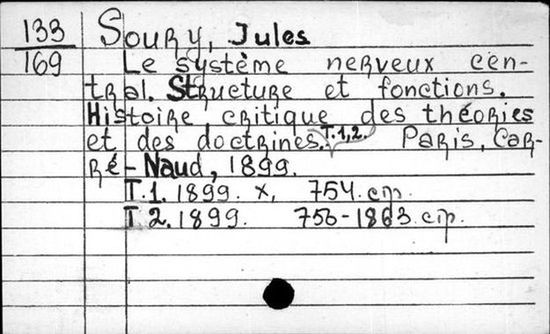 133
169
Soury, Jules
Le système nerveux cen-
tral. Structure et fonctions.
Histoire critique des théories
et des doctrines. T.1,2. Paris, Car-
ré-Naud, 1899.
T.1. 1899. x, 754. стр.
T.2. 1899. 756-1863. стр.